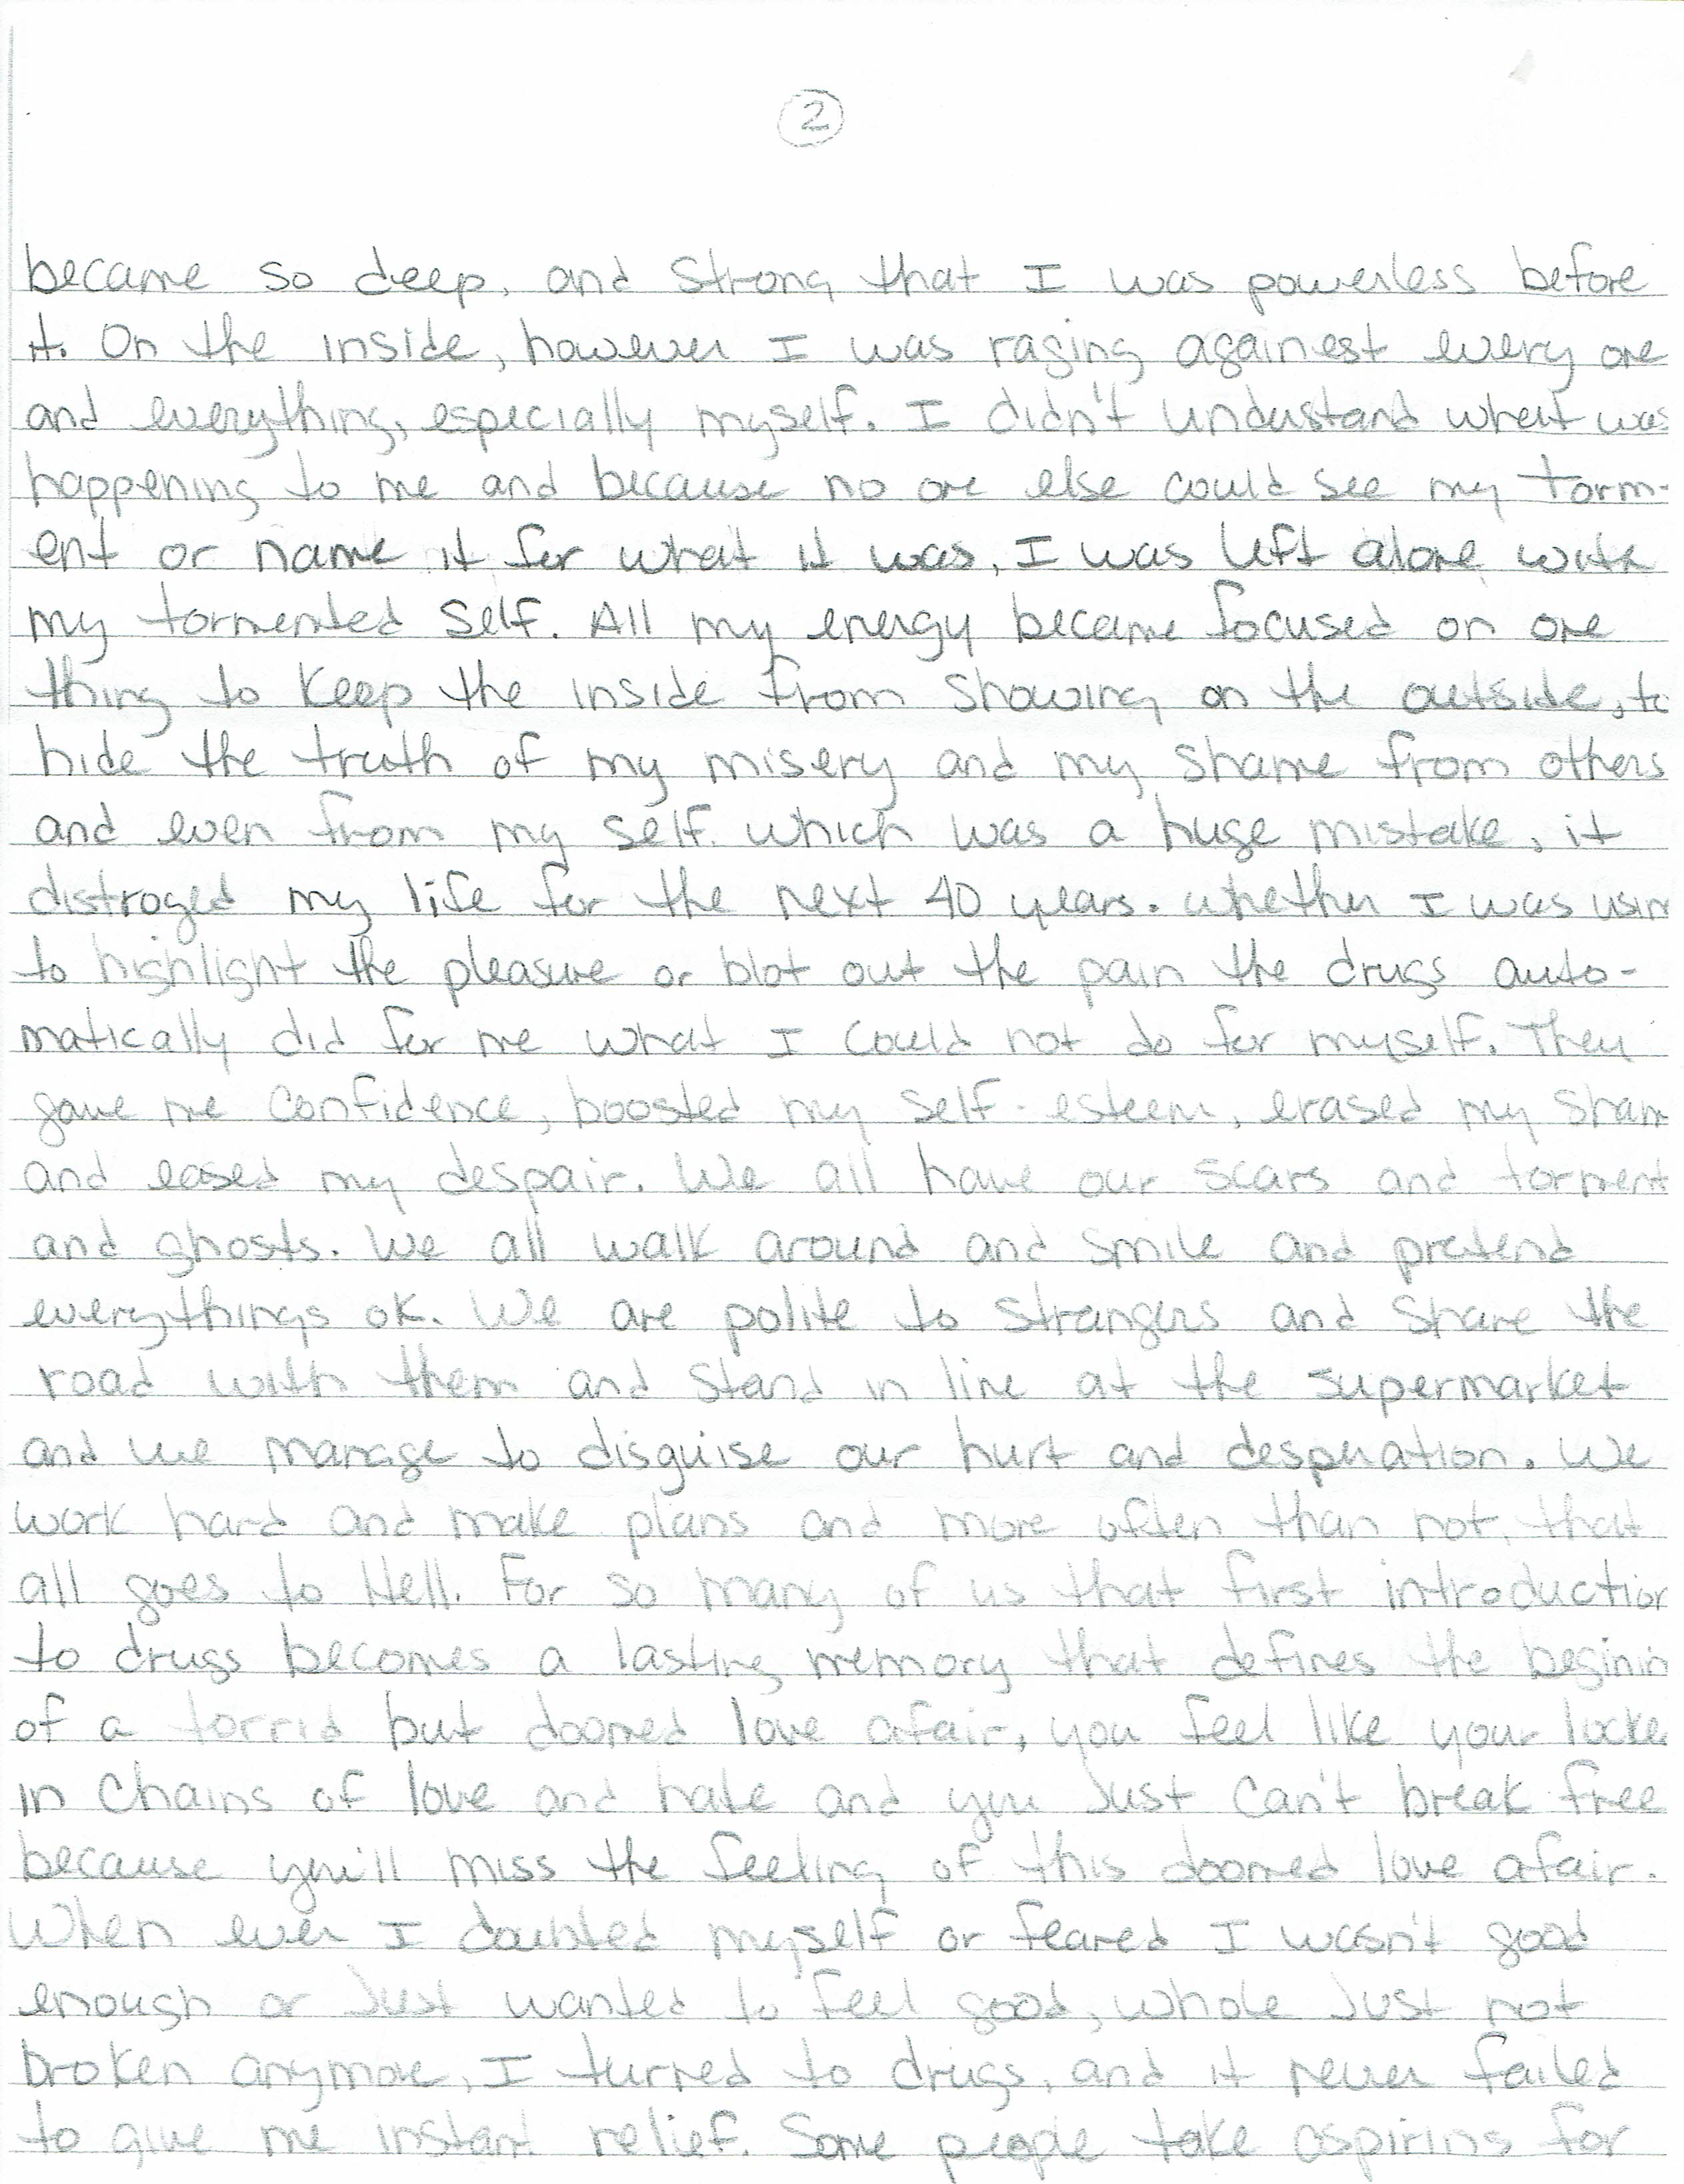 2
became so deep, and strong that I was powerless before
it. On the inside, however I was raging againest every one
and everything, especially myself. I didn't understand what was
happening to me and because no one else could see my torm-
ent or name it for what it was, I was left alone with
my tormented self. All my energy became focused on one
thing to keep the inside from showing on the outside, to
hide the truth of my misery and my shame from others
and even from my self. which was a huge mistake, it
distroyed my life for the next 40 years. whether I was usin
to highlight the pleasure or blot out the pain the drugs auto-
matically did for me what I could not do for myself. They
gave me confidence, boosted my self-esteem, erased my sham
and eased my despair. We all have our scars and torment
and ghosts. We all walk around and smile and pretend
everythings ok. We are polite to strangers and share the
road with them and stand in line at the supermarket
and we manage to disguise our hurt and desperation. We
work hard and make plans and more often than not, that
all goes to Hell. For so many of us that first introduction
to drugs becomes a lasting memory that defines the beginin
of a torrid but doomed love afair, you feel like your locke
in chains of love and hate and you just can't break free
because you'll miss the feeling of this doomed love afair.
When ever I doubted myself or feared I wasn't good
enough or just wanted to feel good, whole just not
broken anymore, I turned to drugs, and it never failed
to give me instant relief. Some people take aspirins for